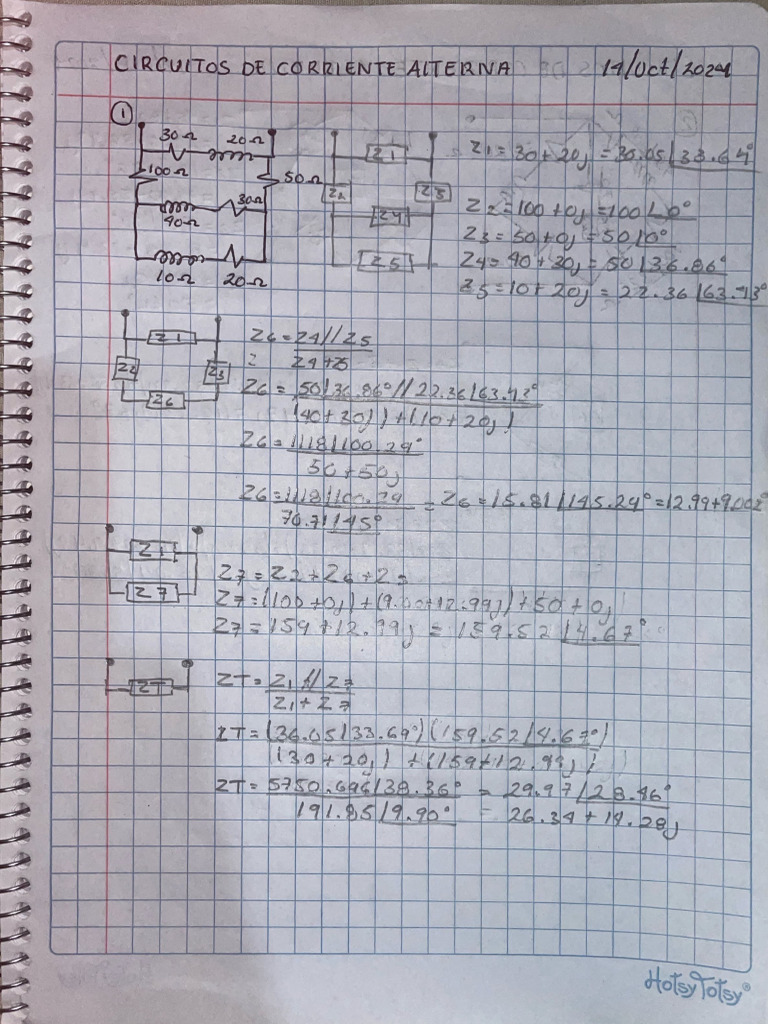 CIRCUITOS DE CORRIENTE ALTERNA 14/Oct/2024
①
30Ω 20Ω
100Ω 50Ω
40Ω 30Ω
10Ω 20Ω
Z1
Z2 Z3
Z4
Z5
Z1 = 30 + 20j = 30.05 ∠33.69°
Z2 = 100 + 0j = 100 ∠0°
Z3 = 50 + 0j = 50 ∠0°
Z4 = 40 + 30j = 50 ∠36.86°
Z5 = 10 + 20j = 22.36 ∠63.43°
Z1
Z2 Z3
Z6
Z6 = Z4 // Z5
= Z4 + Z5
Z6 = 50 ∠36.86° // 22.36 ∠63.43°
(40 + 30j) + (10 + 20j)
Z6 = 1118 ∠100.29°
50 + 50j
Z6 = 1118 ∠100.29 = Z6 = 15.81 ∠145.24° = 12.99 + 9.002
70.71 ∠45°
Z1
Z7
Z7 = Z2 + Z6 + Z3
Z7 = (100 + 0j) + (9.00 + 12.99j) + 50 + 0j
Z7 = 159 + 12.99j = 159.52 ∠4.67°
ZT
ZT = Z1 // Z7
Z1 + Z7
ZT = (36.05 ∠33.69°) (159.52 ∠4.67°)
(30 + 20j) + (159 + 12.99j)
ZT = 5750.696 ∠38.36° = 29.97 ∠28.46°
191.85 ∠9.90° = 26.34 + 14.28j
HotsyTotsy®